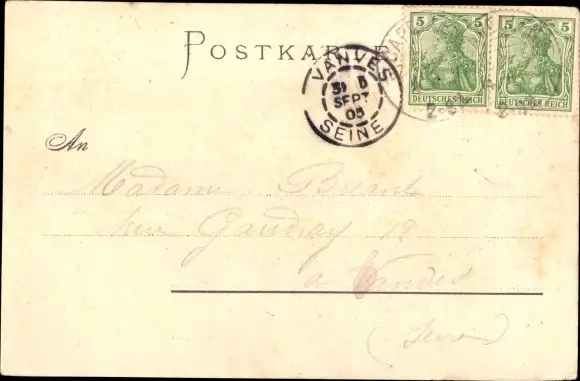 POSTKARTE
5 5
DEUTSCHES REICH
5 5
DEUTSCHES REICH
VANVES
5
SEPT
05
SEINE
An
Madame
Gaudray 19
a Vanves
(Seine)